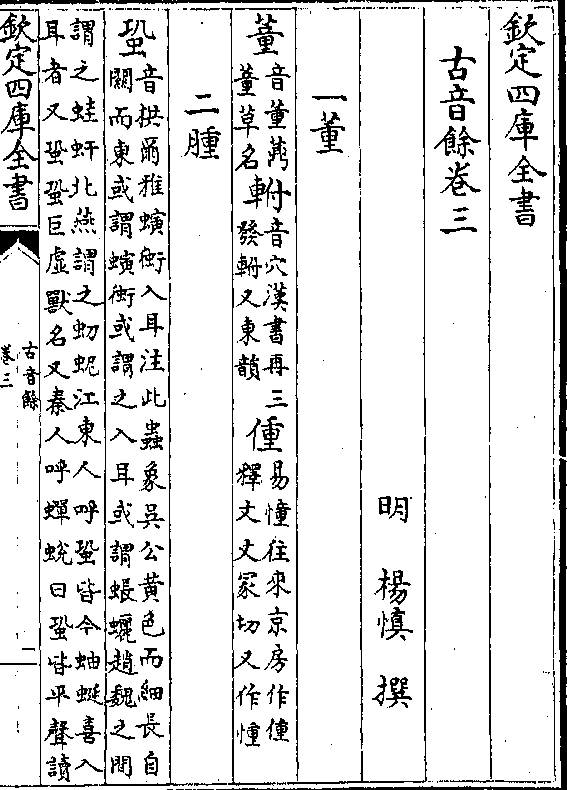 欽定四庫全書
古音餘卷三
明 楊慎 撰
一董
蕫 音董薡蕫草名 軵 音穴漢書再三發軵又東韻 偅 易憧往來京房作偅釋文丈冢切又作憧
二腫
蛩 音拱爾雅螾衝入耳注此蟲象吳公黄色而細長自
關而東或謂螾衝或謂之入耳或謂䗶趙魏之間
謂之虶北燕謂之蚭江東人呼蛩皆今蚰蜒喜入
耳者又蛩蛩巨虛獸名又秦人呼蟬蛻曰蛩皆平聲讀
欽定四庫全書
古音餘
卷三
一